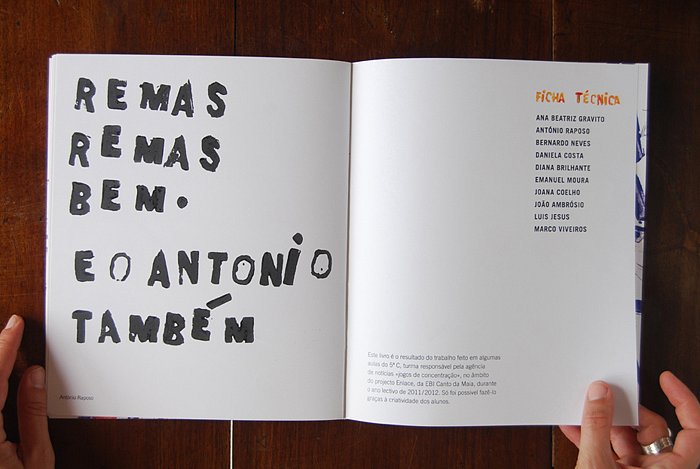 REMAS
REMAS
BEM.
E O ANTONIO
TAMBÉM
António Raposo
FICHA TÉCNICA
ANA BEATRIZ GRAVITO
ANTÓNIO RAPOSO
BERNARDO NEVES
DANIELA COSTA
DIANA BRILHANTE
EMANUEL MOURA
JOANA COELHO
JOÃO AMBRÓSIO
LUIS JESUS
MARCO VIVEIROS
Este livro é o resultado do trabalho feito em algumas
aulas do 5º C, turma responsável pela agência
de notícias «jogos de concentração», no âmbito
do projecto Enlace, da EBI Canto da Maia, durante
o ano lectivo de 2011/2012. Só foi possível fazê-lo
graças à criatividade dos alunos.